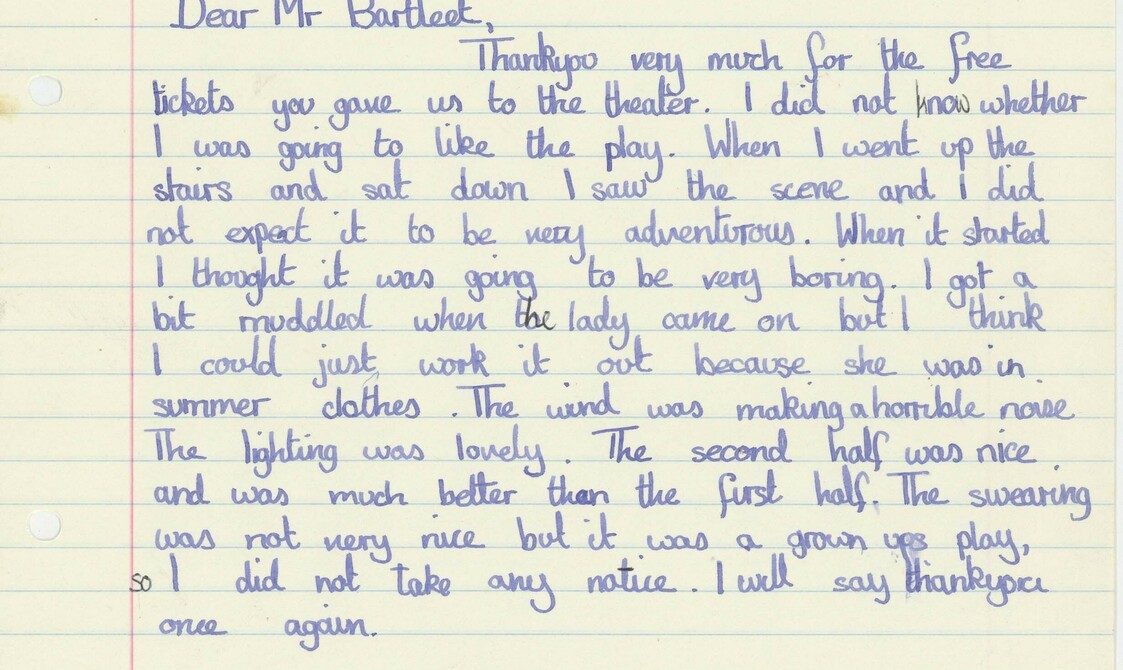 Dear Mr Bartleet,
Thankyou very much for the free
tickets you gave us to the theater. I did not know whether
I was going to like the play. When I went up the
stairs and sat down I saw the scene and I did
not expect it to be very adventurous. When it started
I thought it was going to be very boring. I got a
bit muddled when the lady came on but I think
I could just work it out because she was in
summer clothes. The wind was making a horrible noise
The lighting was lovely. The second half was nice.
and was much better than the first half. The swearing
was not very nice but it was a grown ups play,
so I did not take any notice. I will say thankyou
once again.